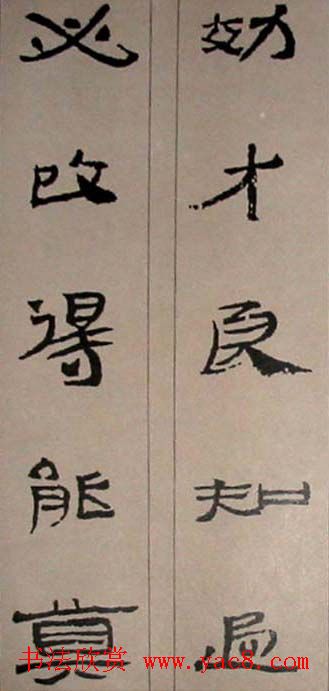 効才良知過
必改得能莫
书法欣赏 www.yac8.com